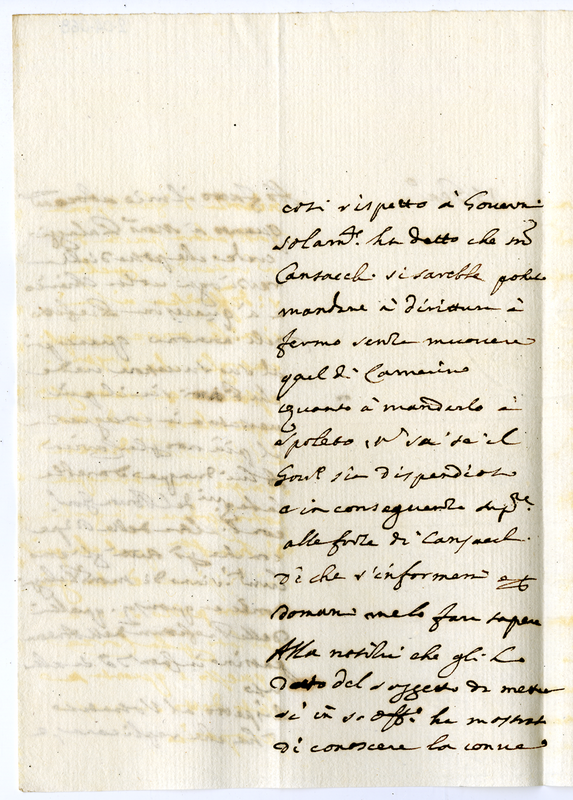 così rispetto à Governi
solam.^e ha detto che m^r
Cansacchi si sarebbe potuto
mandare à dirittura à
fermo senza muovere
quel di Camerino
Quanto à mandarlo à
Spoleto, n' sà se il
Gov.^o sia dispendioso
e in conseguenza sup.^re
alle forze di Cansacchi.
Di che s'informerà e
domani melo farà sapere
Alla notizia che gli hò
Dato del soggetto da metter
si in S. Off.^o ha mostrato
Di conoscere la conve